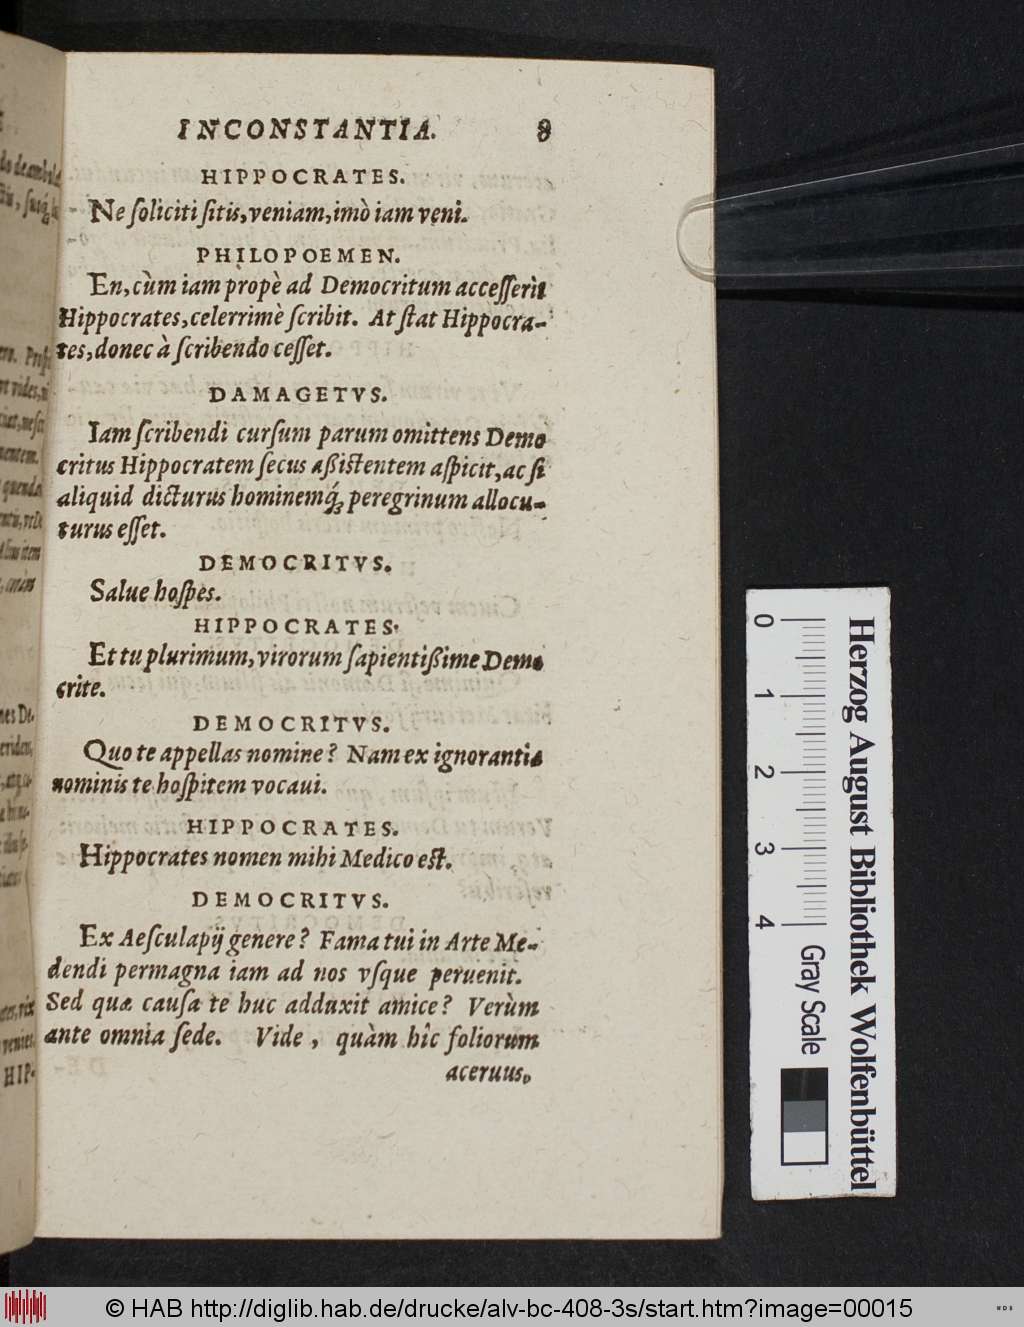 INCONSTANTIA. 8
HIPPOCRATES.
Ne ſoliciti ſitis, veniam, imò iam veni.
PHILOPOEMEN.
En, cùm iam propè ad Democritum acceſſerit
Hippocrates, celerrimè ſcribit. At ſtat Hippocra-
tes, donec à ſcribendo ceſſet.
DAMAGETVS.
Iam ſcribendi curſum parum omittens Demo
critus Hippocratem ſecus aßiſtentem aſpicit, ac ſi
aliquid dicturus hominemq́ꝫ peregrinum allocu-
turus eſſet.
DEMOCRITVS.
Salue hoſpes.
HIPPOCRATES.
Et tu plurimum, virorum ſapientißime Demo
crite.
DEMOCRITVS.
Quo te appellas nomine? Nam ex ignorantia
nominis te hoſpitem vocaui.
HIPPOCRATES.
Hippocrates nomen mihi Medico eſt.
DEMOCRITVS.
Ex Aeſculapij genere? Fama tui in Arte Me-
dendi permagna iam ad nos vſque peruenit.
Sed quæ cauſa te huc adduxit amice? Verùm
ante omnia ſede. Vide, quàm hîc foliorum
aceruus,
HIP-
0 1 2 3 4
Gray Scale
Herzog August Bibliothek Wolfenbüttel
© HAB http://diglib.hab.de/drucke/alv-bc-408-3s/start.htm?image=00015